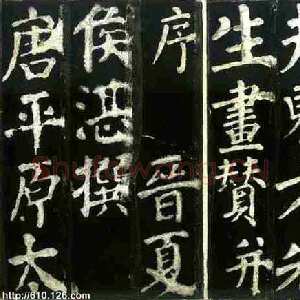 夫東方先
生畫賛并
序 晉夏
侯湛撰
唐平原太
http://610.126.com